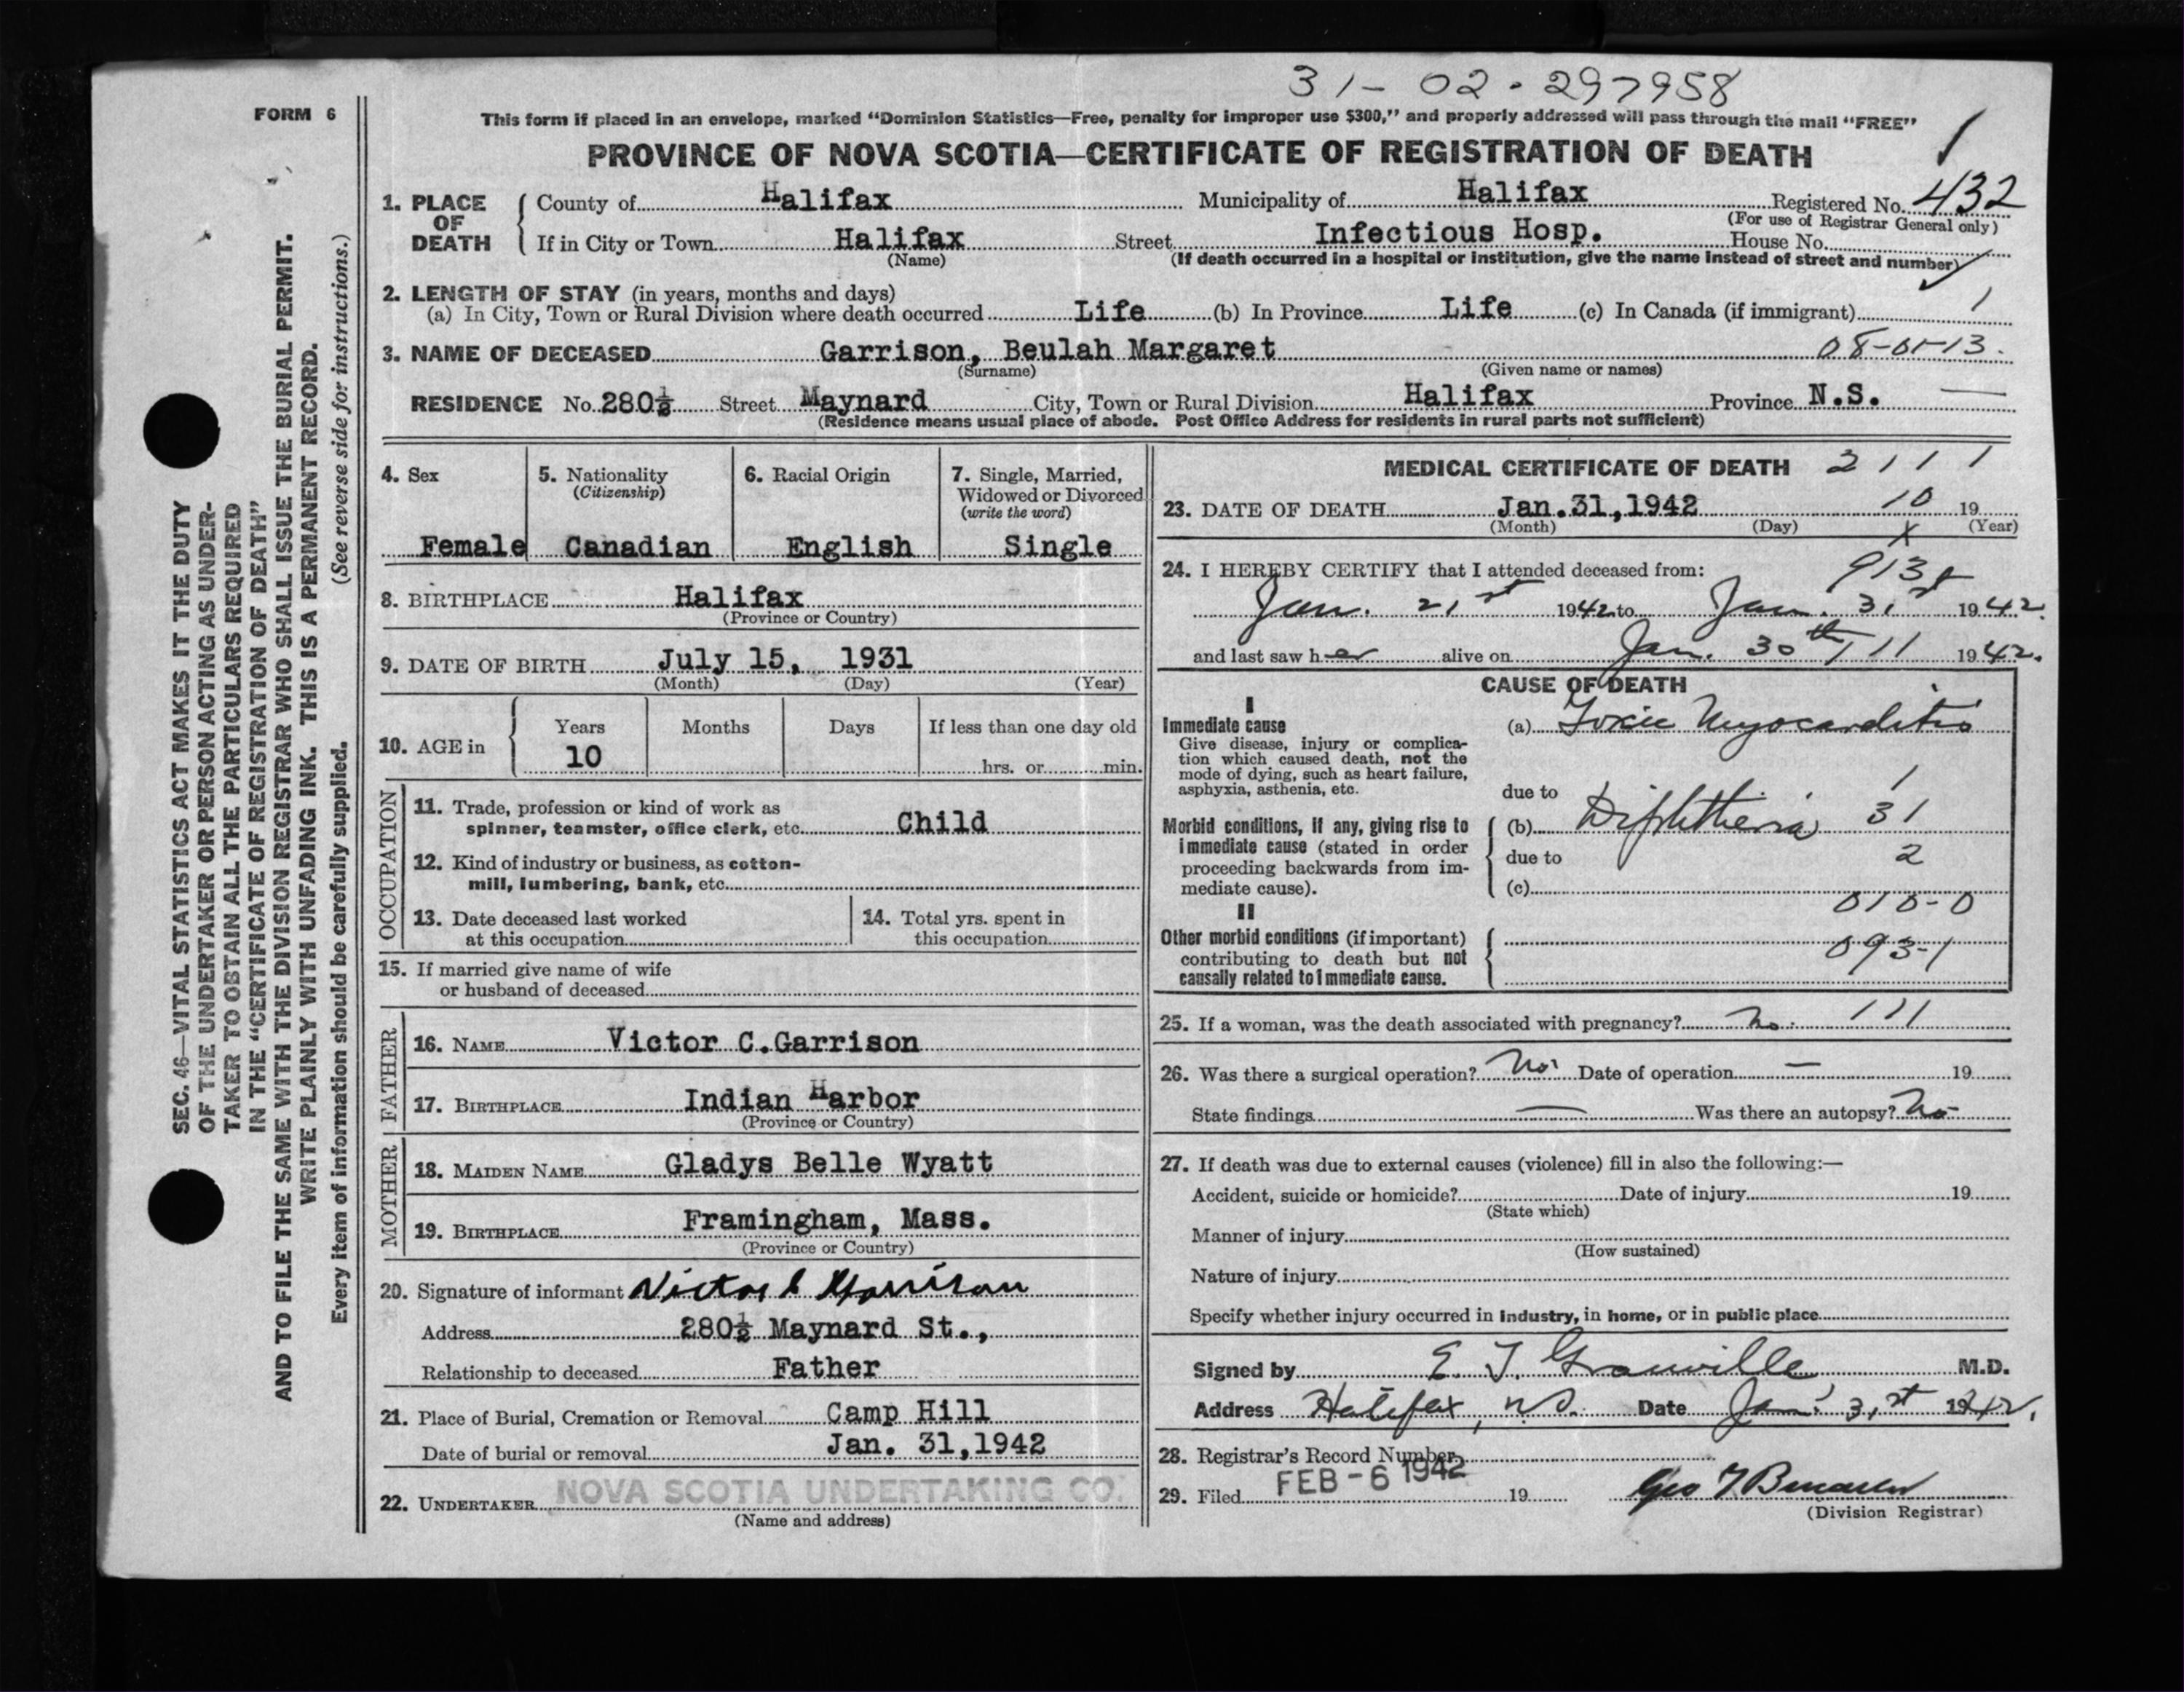 31-02.297958
FORM 6
This form if placed in an envelope, marked “Dominion Statistics—Free, penalty for improper use $300,” and properly addressed will pass through the mail “FREE”
PROVINCE OF NOVA SCOTIA—CERTIFICATE OF REGISTRATION OF DEATH
1. PLACE OF DEATH
County of Halifax Municipality of Halifax Registered No. 432
(For use of Registrar General only)
If in City or Town Halifax Street Infectious Hosp. House No.
(Name) (If death occurred in a hospital or institution, give the name instead of street and number)
2. LENGTH OF STAY (in years, months and days)
(a) In City, Town or Rural Division where death occurred Life (b) In Province Life (c) In Canada (if immigrant) 1
3. NAME OF DECEASED Garrison, Beulah Margaret 08-01-13.
(Surname) (Given name or names)
RESIDENCE No. 280½ Street Maynard City, Town or Rural Division Halifax Province N.S.
(Residence means usual place of abode. Post Office Address for residents in rural parts not sufficient)
4. Sex
Female
5. Nationality
(Citizenship)
Canadian
6. Racial Origin
English
7. Single, Married,
Widowed or Divorced
(write the word)
Single
8. BIRTHPLACE Halifax
(Province or Country)
9. DATE OF BIRTH July 15, 1931
(Month) (Day) (Year)
10. AGE in
Years Months Days If less than one day old
10 hrs. or min.
OCCUPATION
11. Trade, profession or kind of work as
spinner, teamster, office clerk, etc. Child
12. Kind of industry or business, as cotton-
mill, lumbering, bank, etc.
13. Date deceased last worked
at this occupation
14. Total yrs. spent in
this occupation
15. If married give name of wife
or husband of deceased
FATHER
16. NAME Victor C.Garrison
17. BIRTHPLACE Indian Harbor
(Province or Country)
MOTHER
18. MAIDEN NAME Gladys Belle Wyatt
19. BIRTHPLACE Framingham, Mass.
(Province or Country)
20. Signature of informant Victor C Garrison
Address 280½ Maynard St.,
Relationship to deceased Father
21. Place of Burial, Cremation or Removal Camp Hill
Date of burial or removal Jan. 31,1942
22. UNDERTAKER NOVA SCOTIA UNDERTAKING CO.
(Name and address)
MEDICAL CERTIFICATE OF DEATH 2 1 1 1
23. DATE OF DEATH Jan.31,1942 10 19
(Month) (Day) (Year)
X
24. I HEREBY CERTIFY that I attended deceased from: 9138
Jan. 21st 1942 to Jan. 31st 1942.
and last saw her alive on Jan. 30th, 11 1942.
CAUSE OF DEATH
I
Immediate cause
Give disease, injury or complica-
tion which caused death, not the
mode of dying, such as heart failure,
asphyxia, asthenia, etc.
(a) Toxic Myocarditis
1
due to
Morbid conditions, if any, giving rise to
immediate cause (stated in order
proceeding backwards from im-
mediate cause).
(b) Diphtheria 31
due to 2
(c)
010-0
II
Other morbid conditions (if important)
contributing to death but not
causally related to immediate cause.
093-1
25. If a woman, was the death associated with pregnancy? No. 111
26. Was there a surgical operation? No. Date of operation — 19
State findings — Was there an autopsy? No
27. If death was due to external causes (violence) fill in also the following:—
Accident, suicide or homicide? Date of injury 19
(State which)
Manner of injury
(How sustained)
Nature of injury
Specify whether injury occurred in industry, in home, or in public place
Signed by E. T. Granville M.D.
Address Halifax, N.S. Date Jan. 31st 1942.
28. Registrar's Record Number
29. Filed FEB -6 1942 19
(Division Registrar)
SEC. 46—VITAL STATISTICS ACT MAKES IT THE DUTY
OF THE UNDERTAKER OR PERSON ACTING AS UNDER-
TAKER TO OBTAIN ALL THE PARTICULARS REQUIRED
IN THE “CERTIFICATE OF REGISTRATION OF DEATH”
AND TO FILE THE SAME WITH THE DIVISION REGISTRAR WHO SHALL ISSUE THE BURIAL PERMIT.
WRITE PLAINLY WITH UNFADING INK. THIS IS A PERMANENT RECORD.
Every item of information should be carefully supplied. (See reverse side for instructions.)